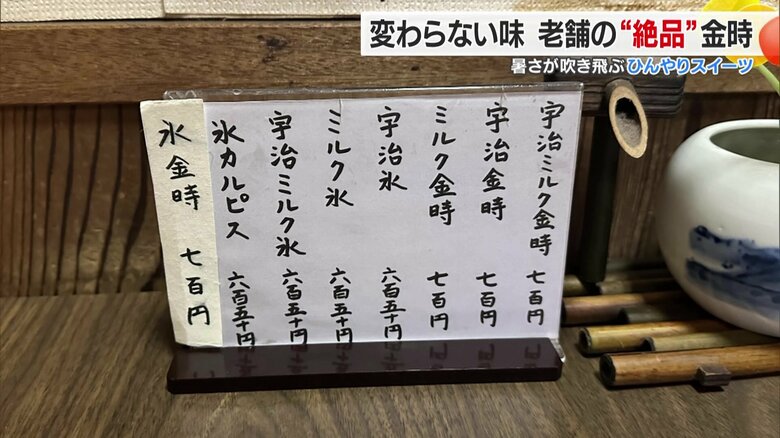 変わらない味 老舗の“絶品”金時
暑さが吹き飛ぶひんやりスイーツ
宇治ミルク金時 七百円
宇治金時 七百円
ミルク金時 七百円
宇治氷 六百五十円
ミルク氷 六百五十円
宇治ミルク氷 六百五十円
氷カルピス 六百五十円
氷金時 七百円